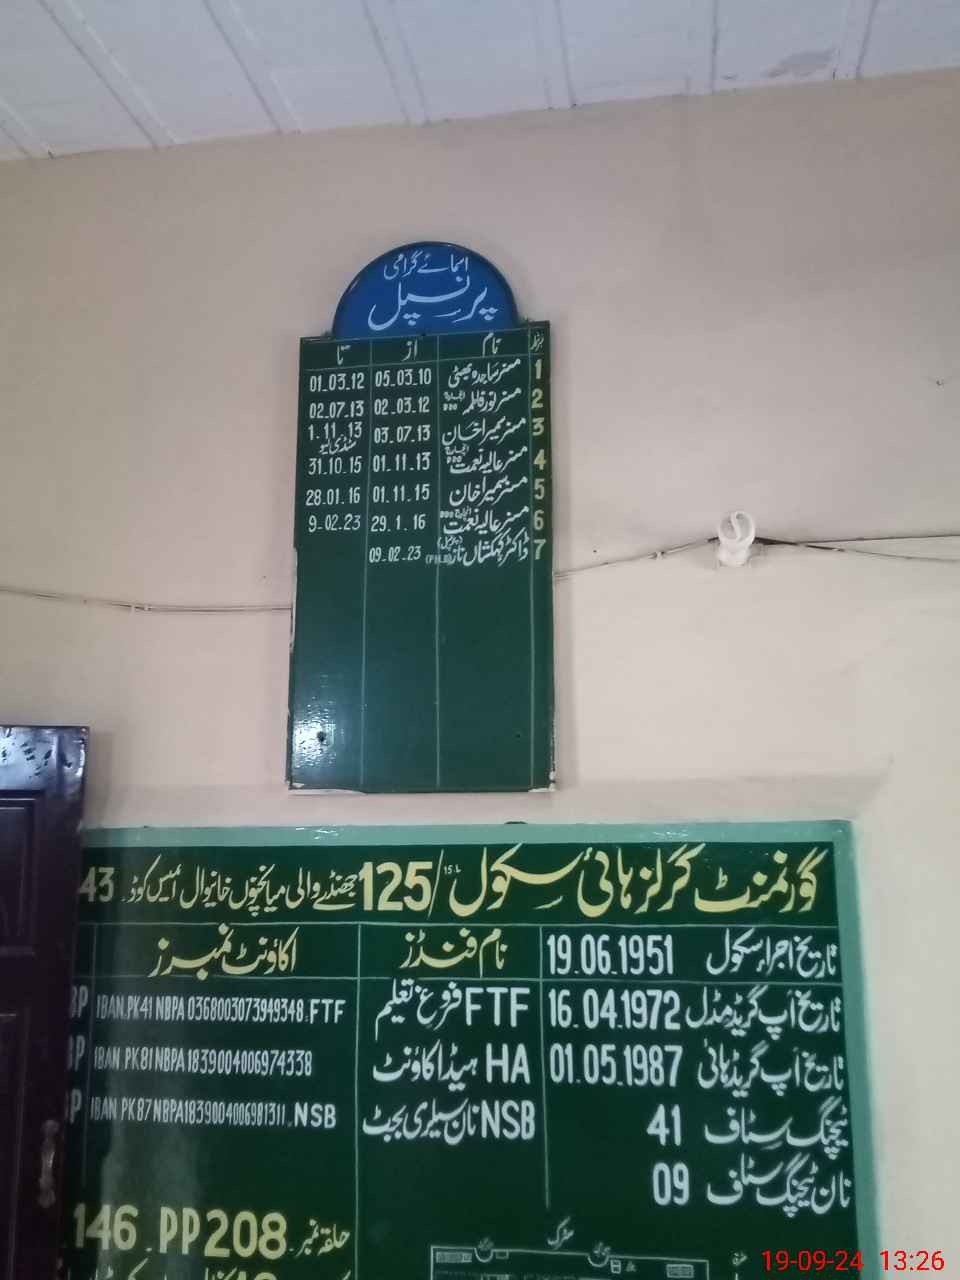 اسمائے گرامی
پرنسپل
نمبرشمار نام از تا
1 مسز ساجدہ بھٹی 05.03.10 01.03.12
2 مسز نور فاطمہ انچارج 02.03.12 02.07.13
3 مسز سمیرا خان 03.07.13 1.11.13
4 مسز عالیہ نعمت انچارج 01.11.13 31.10.15
5 مسز سمیرا خان 01.11.15 28.01.16
6 مسز عالیہ نعمت انچارج 29.1.16 9-02.23
7 ڈاکٹر کہکشاں ناز (پرنسپل) (PH.D) 09-02-23
گورنمنٹ گرلز ہائی سکول 125/15.L جھنڈے والی میانچنوں خانیوال ایمس کوڈ. 43
تاریخ اجراء سکول 19.06.1951 نام فنڈز اکاؤنٹ نمبرز
تاریخ اپ گریڈ مڈل 16.04.1972 FTF فروغ تعلیم IBAN.PK41NBPA0368003073949348.FTF
تاریخ اپ گریڈ ہائی 01.05.1987 HA ہیڈ اکاؤنٹ IBAN PK81NBPA1839004006974338
ٹیچنگ سٹاف 41 NSB نان سیلری بجٹ IBAN PK87NBPA1839004006981311.NSB
نان ٹیچنگ سٹاف 09
حلقہ نمبر. PP208 . 146
سڑک
19-09-24 13:26